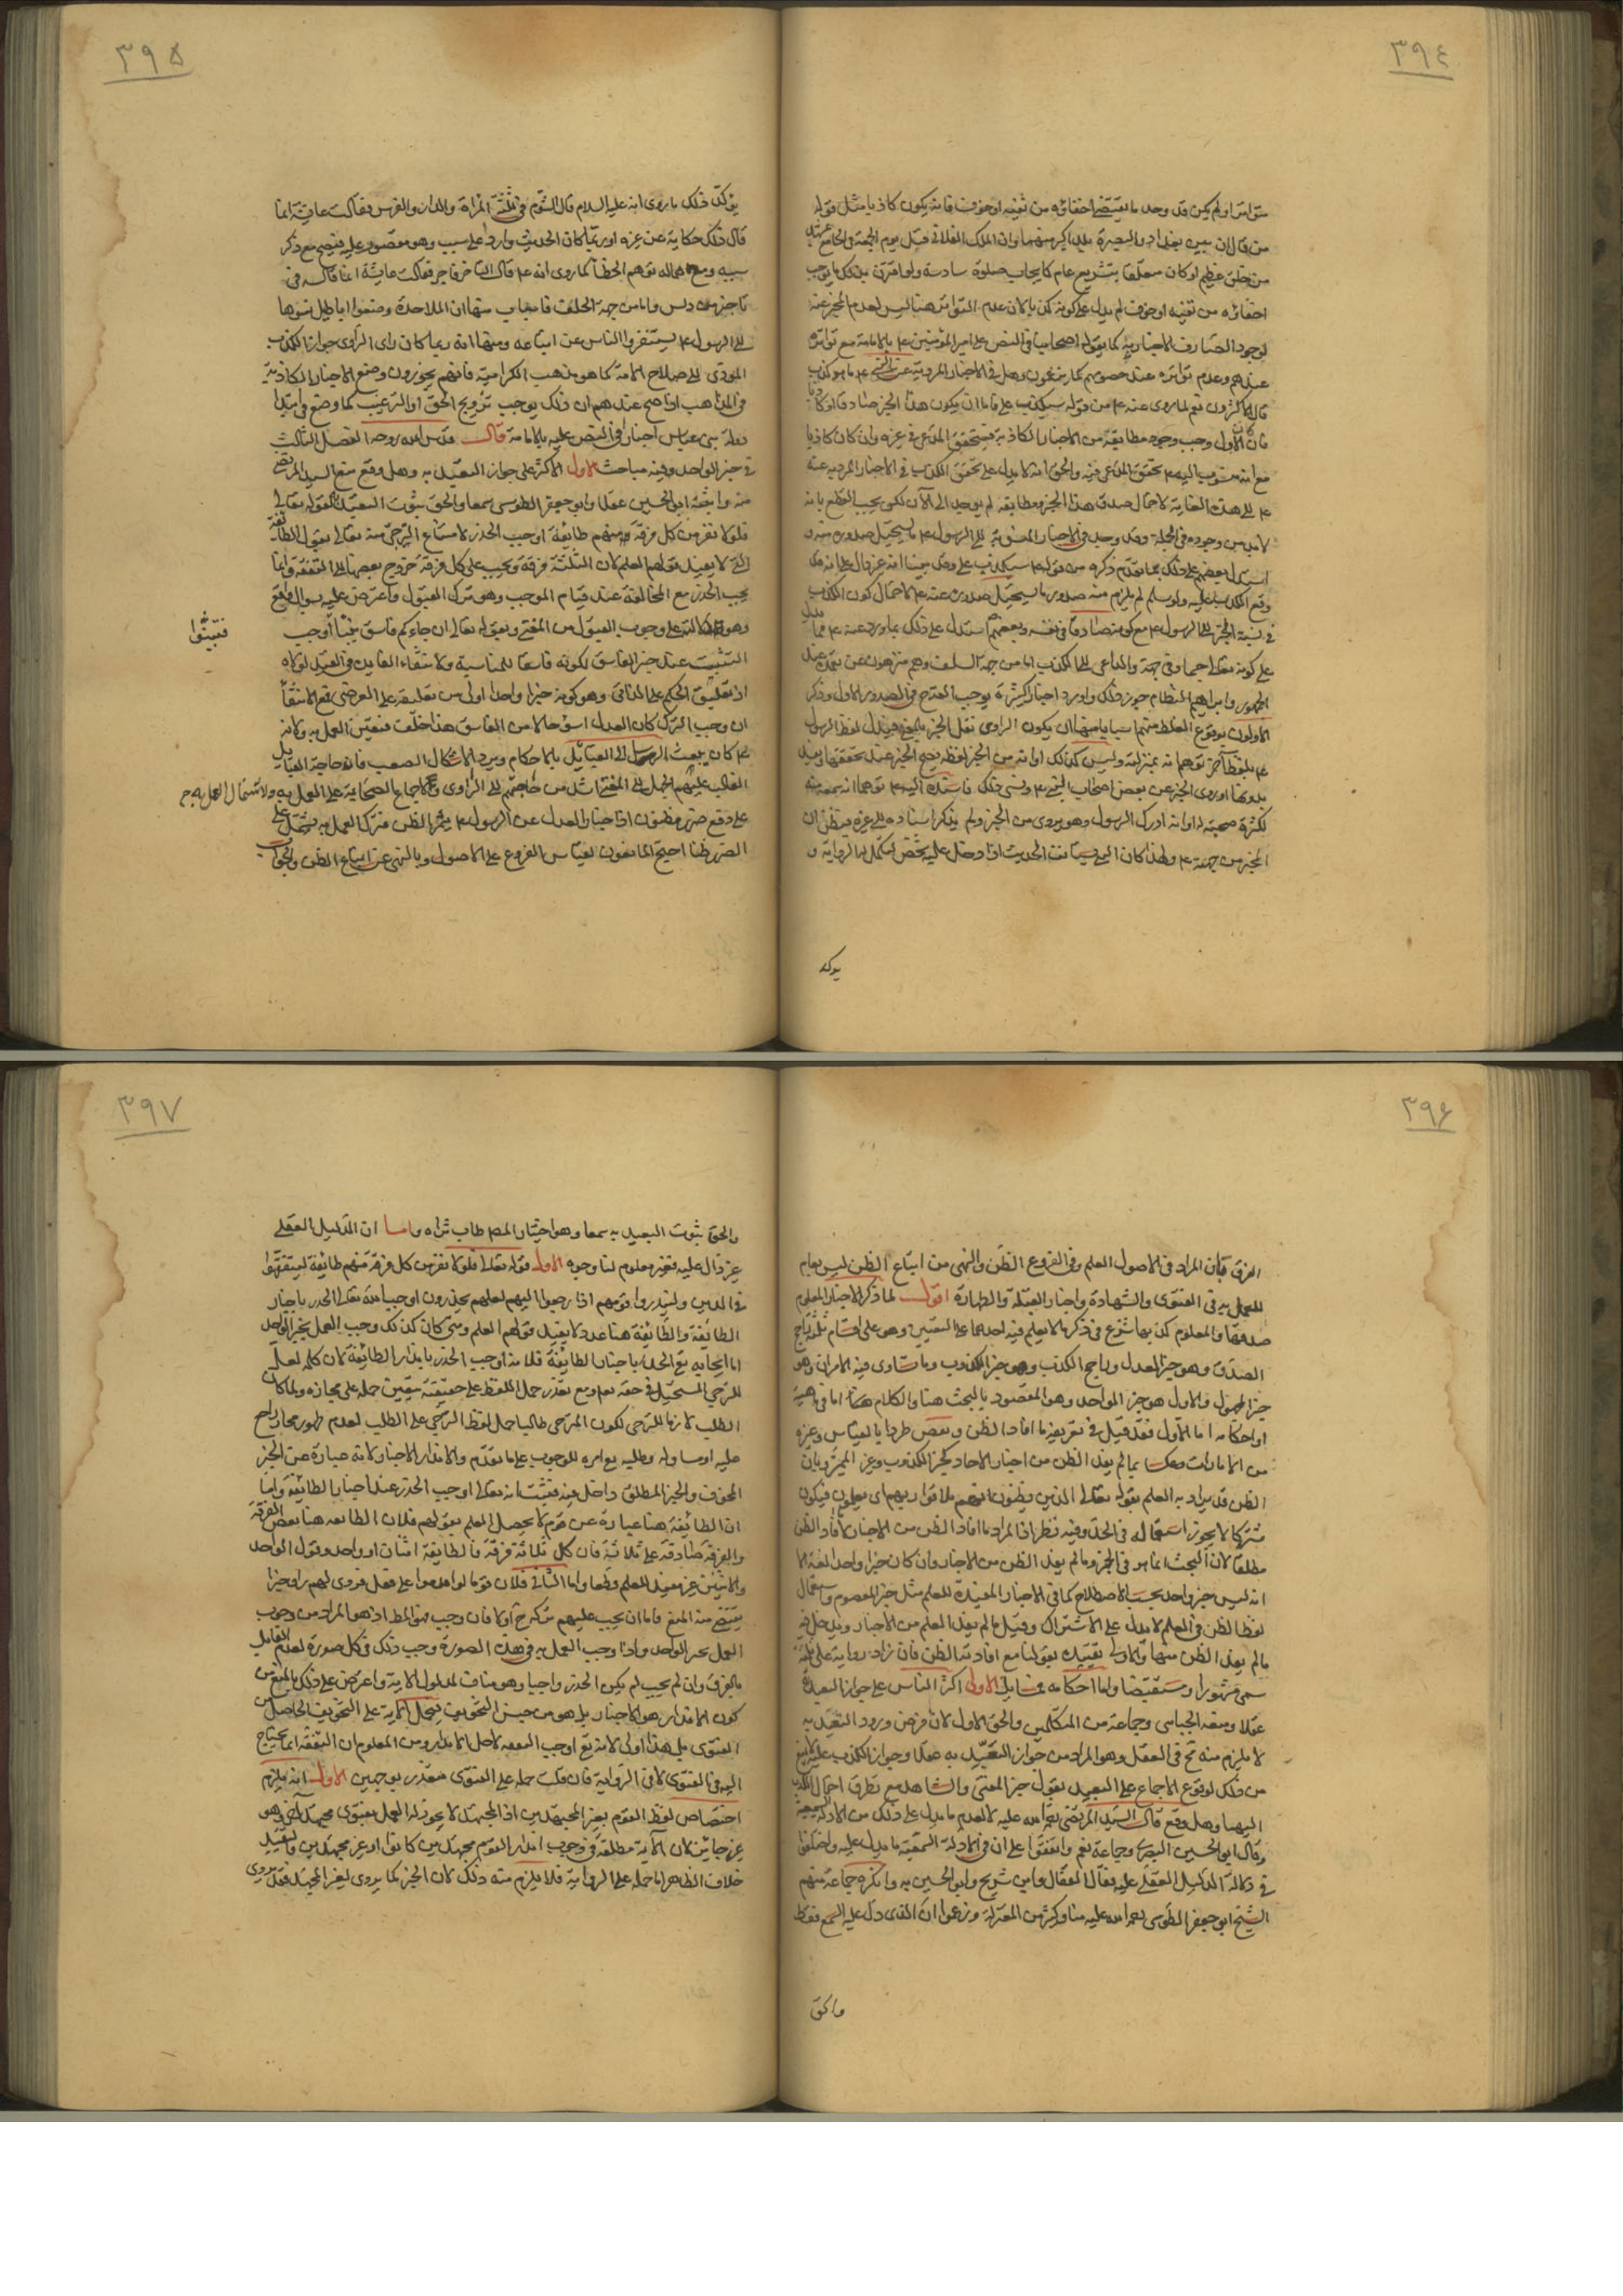 ٣٩٤
متواترا ولم يكن قد وجد ما يقتضى اخفاؤه من تقية او خوف فانه يكون كاذبا مثل قوله
من قال ان بين بغداد والبصرة بلدا اكبر منهما وان الملك الفلانى قتل يوم الجمعة فى الجامع
من خلق عظيم او كان متعلقا بتشريع عام كايجاب صلوة سادسة ولو اقترن بذلك ما يوجب
اخفاؤه من تقية او خوف لم يدل على كونه كذبا لان عدم التواتر هنا ليس لعدم المخبر عنه
لوجود الصارف الاختيارية كما يقوله اصحابنا فى النص على امير المؤمنين ع بالامامة مع تواتره
عندهم وعدم تواتره عند خصومهم كما يزعمون وهل فى الاخبار المروية عن النبى ع ما هو كذب
قال الاكثرون نعم لما روى عنه ع من قوله سيكذب على فاما ان يكون هذا الخبر صادقا او كاذبا
فان كان الاول وجب وجود مطابقه من الاخبار الكاذبة فيتحقق المدعى فى غيره وان كان كاذبا
مع انه منسوب اليه ع تحقق المدعى فيه والحق انه لا يدل على تحقق الكذب فى الاخبار المروية عنه
ع الى هذه الغاية لاحتمال صدق هذا الخبر ومطابقه لم يوجد الى الآن لكن يجب القطع بانه
لا بد من وجوده فى الجملة وقد وجد فى الاخبار المنسوبة الى الرسول ع ما يستحيل صدوره منه و
استدل بعضهم على ذلك بما تقدم ذكره من قوله ع سيكذب على وقد بينا انه غير دال على انه قد
وقع الكذب عليه ولو سلم لم يلزم منه صدور ما يستحيل صدوره عنه ع لاحتمال كون الكذب
فى نسبة الخبر الى الرسول ع مع كونه صادقا فى نفسه وبعضهم استدل على ذلك بما ورد عنه ع مما يدل
على كونه تعالى جسما وفى جهة والداعى الى الكذب اما من جهة السلف وهم منزهون عن تعمده عند
الجمهور وابراهيم النظام جوز ذلك واورد اخبارا كثيرة يوجب القدح فى الصدور الاول وذكر
الاولون لوقوع الغلط منهم اسبابا منها ان يكون الراوى نقل الخبر بالمعنى فبدل لفظ الرسول
ع بلفظ آخر توهم انه بمنزلته وليس كذلك او انه نسى من الخبر لفظه يصح الخبر عند تحققها ويفسد
بدونها او روى الخبر عن بعض اصحاب النبى ع ونسى ذلك فاسنده اليه ع توهما انه سمعه منه
لكثرة صحبته له او انه ادرك الرسول وهو يروى من الخبر ولم يذكر اسناده الى غيره فيظن ان
الخبر من جهته ع ولهذا كان النبى يستأنف الحديث اذا دخل عليه شخص ليكمل له الرواية و
يوكد
٣٩٥
يوكد ذلك ما روى انه عليه السلام قال الشؤم فى ثلثة المرأة والدار والفرس فقالت عايشة انما
قال ذلك حكاية عن غيره او ربما كان الحديث واردا على سبب وهو مقصور عليه فيصح مع ذكر
سببه ومع اهماله توهم الخطأ كما روى انه ع قال التاجر فاجر فقالت عايشة انما قاله فى
تاجر مدلس واما من جهة الخلف فاسباب منها ان الملاحدة وضعوا اباطيل نسبوها
الى الرسول ع ليستنفروا الناس عن اتباعه ومنها انه ربما كان راى الراوى جواز الكذب
المودى الى صلاح الامة كما هو مذهب الكرامية فانهم يجوزون وضع الاخبار الكاذبة
فى المذاهب اذا صح عندهم ان ذلك يوجب ترويج الحق او الترغيب كما وضع فى ابتدا
دولة بنى عباس اخبارا فى النص عليه بالامامة قال قدس الله روحه الفصل الثالث
فى خبر الواحد وفيه مباحث الاول الاكثر على جواز التعبد به وهل وقع منع السيد المرتضى
منه واثبته ابو الحسين عقلا وابو جعفر الطوسى سمعا والحق ثبوت التعبد لقوله تعالى
فلولا نفر من كل فرقة منهم طائفة اوجب الحذر لامتناع الترجى منه تعالى بقول الطائفة
التى لا يفيد قولهم العلم لان الثلثة فرقة ويجب على كل فرقة خروج بعضها الى التفقه وانما
يجب الحذر مع المخالفة عند قيام الموجب وهو ترك القبول واعترض عليه
وهو دلالته على وجوب القبول من المفتى وبقوله تعالى ان جاءكم فاسق بنبأ اوجب
فتبينوا
التثبت عند خبر الفاسق لكونه فاسقا للمناسبة ولانتفاء الفايدة فى القيد لولاه
اذ تعليق الحكم على الذاتى وهو كونه خبرا واحدا اولى من تعليقه على العرضى فمع الانتفاء
ان وجب الترك كان العدل اسوء حالا من الفاسق هذا خلف فتعين العمل به ولانه
ع كان يبعث الرسل الى القبائل بالاحكام ويرد الاشكال الصعب فان حاجة القبايل
الغالب عليهم الجهل الى المفتى اشد من حاجتهم الى الراوى ولاجماع الصحابة على العمل به ولاشتمال العمل به
على دفع ضرر مظنون اذ اخبار العدل عن الرسول ع يثمر الظن فترك العمل به يشتمل على
الضرر ظنا احتج المانعون بقياس الفروع على الاصول وبالنهى عن اتباع الظن والجواب
٣٩٦
الفرق فان المراد فى الاصول العلم وفى الفروع الظن والنهى من اتباع الظن ليس بعام
للعمل به فى الفتوى والشهادة واخبار القبلة والطهارة اقول لما ذكر الاخبار المعلوم
صدقها والمعلوم كذبها شرع فى ذكر ما لا يعلم فيه احدهما على التعيين وهو على اقسام ثلثة راجح
الصدق وهو خبر العدل وراجح الكذب وهو خبر الكذوب وما تساوى فيه الامران وهو
خبر المجهول والاول هو خبر الواحد وهو المقصود بالبحث هنا والكلام هنا اما فى ماهيته
او احكامه اما الاول فقد قيل فى تعريفه ما افاد الظن ونقض طردا بالقياس وغيره
من الامارات وعكسا بما لم يفد الظن من اخبار الاحاد كخبر الكذوب وغير المميز وبان
الظن قد يراد به العلم بقوله تعالى الذين يظنون انهم ملاقوا ربهم اى يعلمون فيكون
مشتركا لا يجوز استعماله فى الحد وفيه نظر اذ المراد ما افاد الظن من الاخبار لا ما افاد الظن
مطلقا لان البحث انما هو فى الخبر وما لم يفد الظن من الاخبار وان كان خبرا واحدا لغة الا
انه ليس خبر واحد بحسب الاصطلاح كما فى الاخبار المفيدة للعلم مثل خبر المعصوم واستعمال
لفظ الظن فى العلم لا يدل على الاشتراك وقيل ما لم يفد العلم من الاخبار ويدخل فيه
ما لم يفد الظن منها والاولى تقييده بقولنا مع افادته الظن فان زاد رواته على ثلثة
سمى مشهورا ومستفيضا واما احكامه فمسايل الاولى اكثر الناس على جواز التعبد به
عقلا ومنعه الجبائى وجماعة من المتكلمين والحق الاول لان فرض ورود التعبد به
لا يلزم منه مح فى العقل وهو المراد من جواز التعبد به عقلا وجواز الكذب عليه لا يمنع
من ذلك لوقوع الاجماع على التعبد بقول خبر المفتى والشاهد مع تطرق احتمال الكذب
اليهما وهل وقع قال السيد المرتضى رحمه الله عليه لا لعدم ما يدل على ذلك من الادلة السمعية
وقال ابو الحسين البصرى وجماعة نعم واتفقوا على ان فى الادلة السمعية ما يدل عليه واختلفوا
فى دلالة الدليل العقلى عليه فقال القفال وابن شريح وابو الحسين به وانكره جماعة منهم
الشيخ ابو جعفر الطوسى رحمه الله عليه منا وكثير من المعتزلة وزعموا ان الذى دل عليه السمع فقط
والحق
٣٩٧
والحق ثبوت التعبد به سمعا وهو اختيار المص طاب ثراه واما ان الدليل العقلى
غير دال عليه فغير معلوم لنا وجوه الاول قوله تعالى فلولا نفر من كل فرقة منهم طائفة ليتفقهوا
فى الدين ولينذروا قومهم اذا رجعوا اليهم لعلهم يحذرون اوجب الله تعالى الحذر باخبار
الطائفة والطائفة هنا عدد لا يفيد قولهم العلم ومتى كان كذلك وجب العمل بخبر الواحد
اما ايجابه تع الحذر باخبار الطائفة فلانه اوجب الحذر بانذار الطائفة لان كلمة لعل
للترجى المستحيل فى حقه تعالى ومع تعذر حمل اللفظ على حقيقته يتعين حمله على مجازه ولما كان
الطلب لازما للترجى لكون المترجى طالبا حمل لفظ الترجى على الطلب لعدم ظهور مجاز راجح
عليه او مساو له وطلبه تع امره للوجوب على ما تقدم والانذار الاخبار لانه عبارة عن الخبر
المخوف والخبر المطلق داخل فيه فيثبت انه تعالى اوجب الحذر عند اخبار الطائفة واما
ان الطائفة هنا عبارة عن قوم لا يحصل العلم بقولهم فلان الطائفة هنا بعض الفرقة
والفرقة صادقة على ثلاثة فان كل ثلاثة فرقة فالطائفة اثنان او واحد وقول الواحد
والاثنين غير مفيد للعلم قطعا واما الثانى فلان قوما لو اقدموا على فعل فروى لهم راو خبرا
يقتضى منه المنع فاما ان يجب عليهم تركه ح او لا فان وجب فهو المط اذ هو المراد من وجوب
العمل بخبر الواحد واذا وجب العمل به فى هذه الصورة وجب ذلك فى كل صورة لعدم القايل
بالفرق وان لم يجب لم يكن الحذر واجبا وهو مناف لمدلول الاية واعترض على ذلك بالمنع من
كون الانذار هو الاخبار بل هو من جنس التخويف فيحمل الاية على التخويف الحاصل من
الفتوى بل هذا اولى لانه تع اوجب التفقه لاجل الانذار ومن المعلوم ان التفقه انما يحتاج
اليه فى الفتوى لا فى الرواية فان قلت حمله على الفتوى متعذر بوجهين الاول انه يلزم
اختصاص لفظ القوم بغير المجتهدين اذ المجتهد لا يجوز له العمل بفتوى مجتهد آخر وهو
غير جائز لان الآية مطلقة فى وجوب انذار القوم مجتهدين كانوا او غير مجتهدين والتقييد
خلاف الظاهر اما حمله على الرواية فلا يلزم منه ذلك لان الخبر كما يروى لغير المجتهد فقد يروى